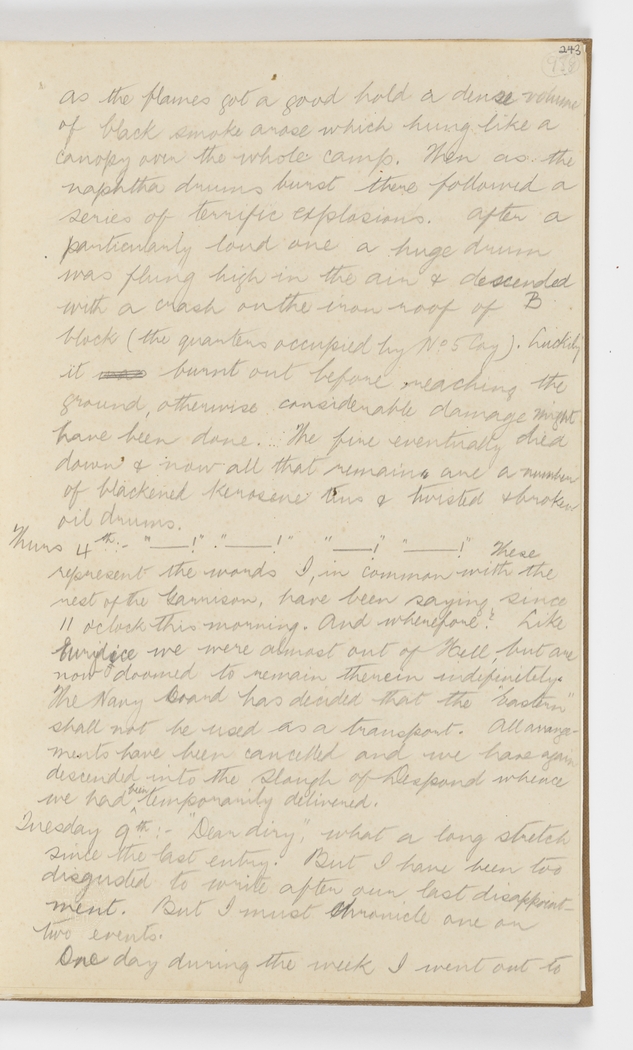 243
938
as the flames got a good hold a dense volume
of black smoke arose which hung like a
canopy over the whole camp. Then as the
naphtha drums burst there followed a
series of terrific explosions. After a
particularly loud one a huge drum
was flung high in the air & descended
with a crash on the iron roof of B
block (the quarters occupied by No 5 Coy). Luckily
it burnt out before reaching the
ground, otherwise considerable damage might
have been done. The fire eventually died
down & now all that remains are a number
of blackened kerosene tins & twisted & broken
oil drums.
Thurs 4th:- "——!" "——!" "——!" "——!" These
represent the words I, in common with the
rest of the Garrison, have been saying since
11 oclock this morning. And wherefore? Like
Euridice we were almost out of Hell, but are
now doomed to remain therein indefinitely.
The Navy Board has decided that the "Eastern"
shall not be used as a transport. All arrange-
ments have been cancelled and we have again
descended into the Slough of Despond whence
we had been temporarily delivered.
Tuesday 9th:- "Dear diry", what a long stretch
since the last entry. But I have been too
disgusted to write after our last disappoint-
ment. But I must chronicle one or
two events.
One day during the week I went out to